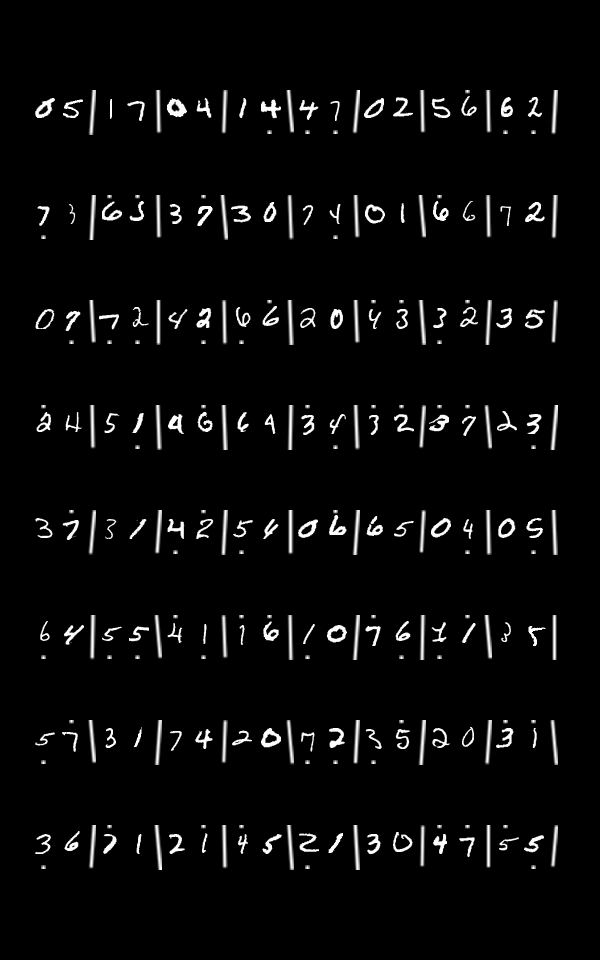 0 5 | 1 7 | 0 4 | 1 4̣ | 4̣ 7̣ | 0 2 | 5 6̇ | 6̣ 2̣ |
7̣ 3 | 6̇ 3̇ | 3 7̇ | 3 0 | 7 4̣ | 0 1 | 6̇ 6 | 7 2 |
0 7̣ | 7̣ 2̣ | 4 2̣ | 6̣ 6̇ | 2 0 | 4̇ 3̇ | 3̣ 2̇ | 3 5 |
2̇ 4 | 5 1̣ | 4 6̇ | 6 4 | 3 4̣ | 3̇ 2̇ | 3̇ 7̇ | 2 3̣ |
3 7̇ | 3 1 | 4̣ 2̇ | 5̣ 4 | 0 6̇ | 6 5 | 0 4̣ | 0 5̣ |
6̣ 4 | 5̣ 5̣ | 4̇ 1̣ | 1̇ 6̇ | 1̣ 0 | 7̇ 6̣ | 1̣ 1̇ | 3 5 |
5̣ 7̇ | 3 1 | 7 4 | 2 0 | 7̣ 2̣ | 3̣ 5̇ | 2 0 | 3̇ 1̇ |
3̣ 6 | 7̇ 1 | 2 1̇ | 4̇ 5 | 2̣ 1 | 3 0 | 4̇ 7̇ | 5̇ 5̣ |